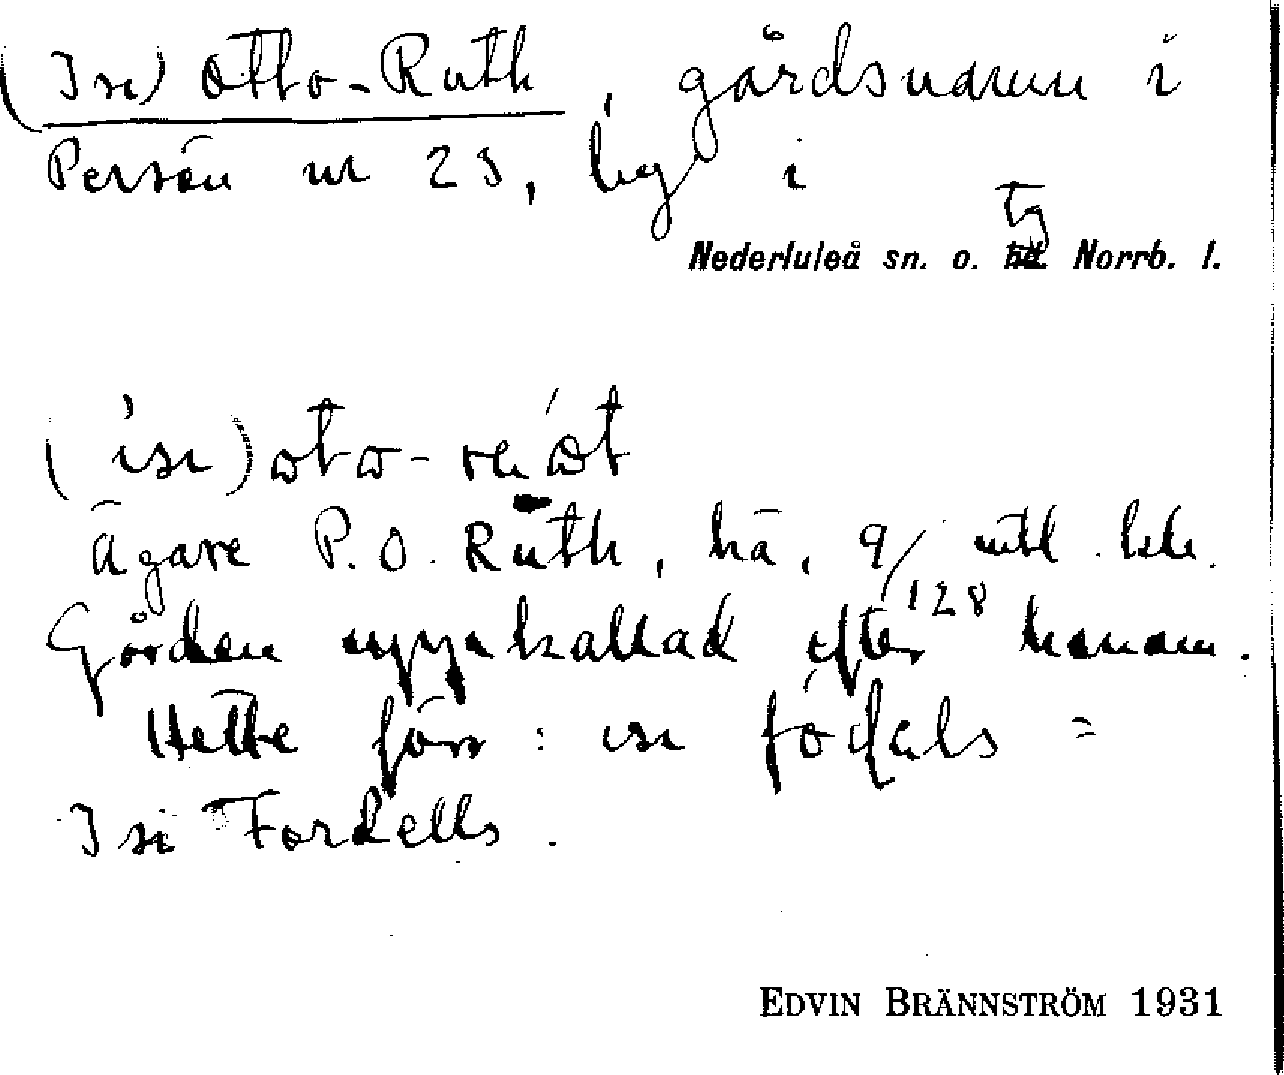 (Isi) Otto-Ruth, gårdsnamn i
Persön nr 23, by i
Nederluleå sn. o. tg Norrb. l.
(isi) oto-
Ägare P. O. Ruth, hä, 9/128 mtl
Gården uppkallad efter honom.
Hette förr: isi =
Isi Fordells.
EDVIN BRÄNNSTRÖM 1931